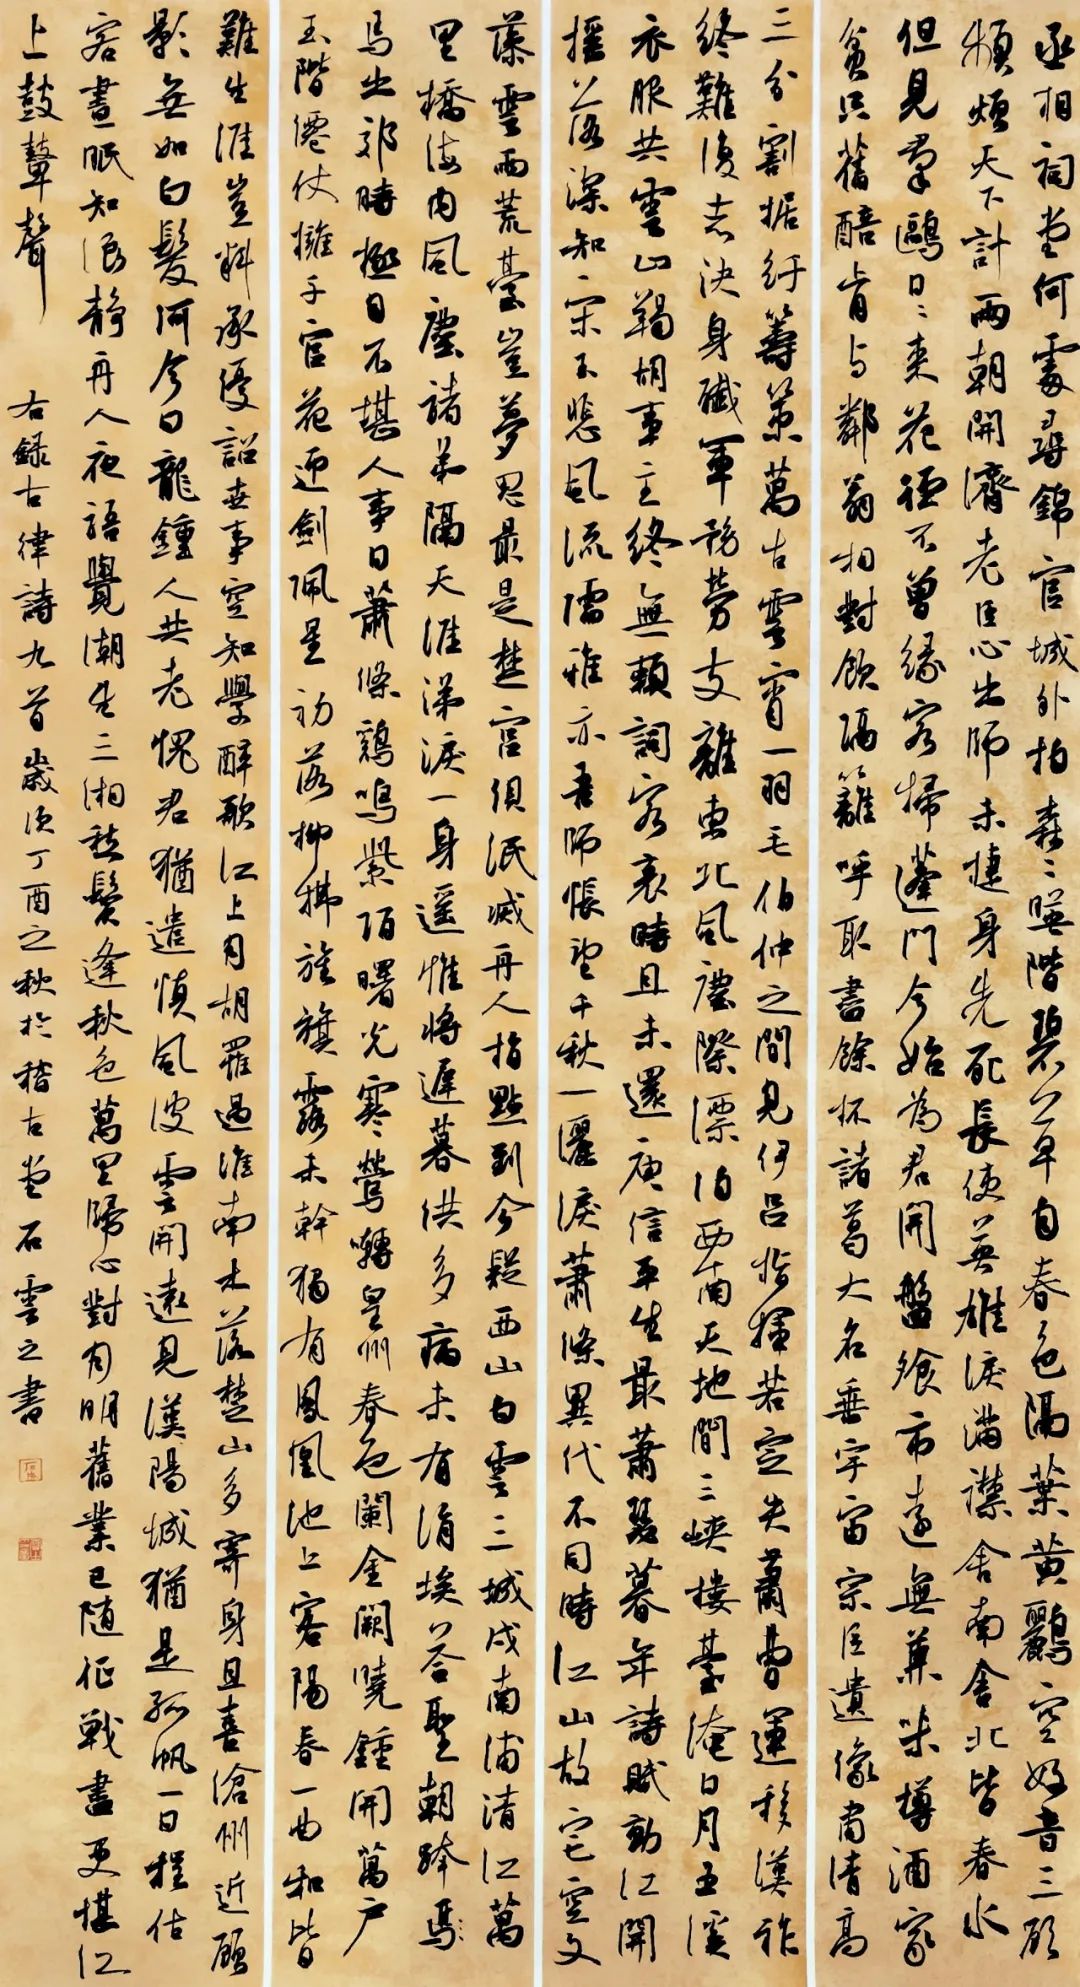 丞相祠堂何處尋錦官城外柏森〻暎階碧草自春色隔葉黃鸝空好音三顧
頻煩天下計兩朝開濟老臣心出師未捷身先死長使英雄淚滿襟舍南舍北皆春水
但見羣鷗日〻來花徑不曾緣客掃蓬門今始為君開盤飧市遠無兼味樽酒家
貧只舊醅肯与鄰翁相對飲隔籬呼取盡餘杯諸葛大名垂宇宙宗臣遺像肅清高
三分割據紆籌策萬古雲霄一羽毛伯仲之間見伊呂指揮若定失蕭曹運移漢祚
終難復志決身殲軍務勞支離東北風塵際漂泊西南天地間三峽樓臺淹日月五溪
衣服共雲山羯胡事主終無賴詞客哀時且未還庾信平生最蕭瑟暮年詩賦動江開
搖落深知宋玉悲風流儒雅亦吾師悵望千秋一灑淚蕭條異代不同時江山故宅空文
藻雲雨荒臺豈夢思最是楚宮俱泯滅舟人指點到今疑西山白雪三城戍南浦清江萬
里橋海內風塵諸弟隔天涯涕淚一身遙惟將遲暮供多病未有涓埃答聖朝跨馬
馬出郊時極目不堪人事日蕭條鷄鳴紫陌曙光寒鶯囀皇州春色闌金闕曉鍾開萬戶
玉階僊仗擁千官花迎劍佩星初落柳拂旌旗露未幹獨有鳳凰池上客陽春一曲和皆
難生涯豈料承優詔世事空知學醉歌江上月胡過淮南木落楚山多寄身且喜滄州近顧
影無如白髮何今日龍鍾人共老愧君猶遣慎風波雲開遠見漢陽城猶是孤帆一日程估
客晝眠知浪靜舟人夜語覺潮生三湘愁鬢逢秋色萬里歸心對月明舊業已隨征戰盡更堪江
上鼓鼙聲
右錄古律詩九首歲次丁酉之秋於稽古堂石雲之書